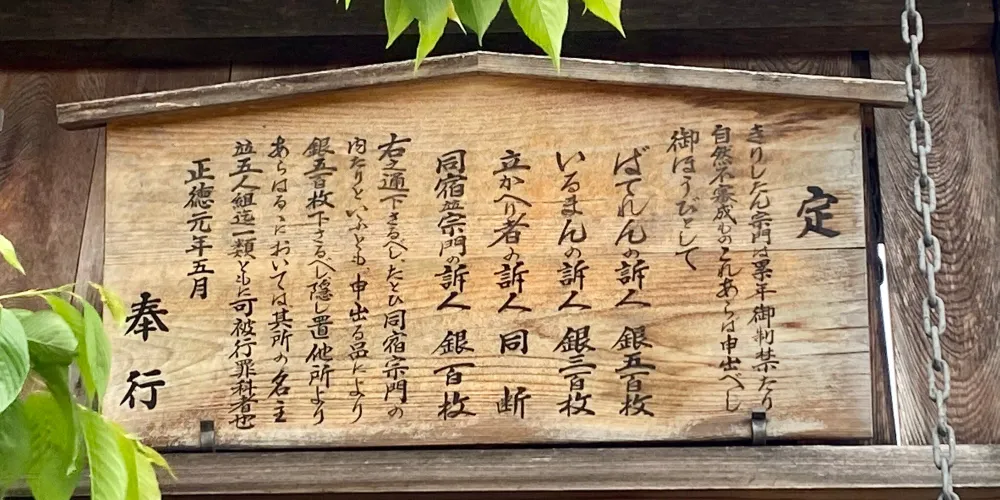 定
きりしたん宗門は累年御制禁たり
自然不審成ものこれあらは申出へし
御ほうびとして
ばてれんの訴人 銀五百枚
いるまんの訴人 銀三百枚
立かへり者の訴人 同断
同宿並宗門の訴人 銀百枚
右之通下さるへしたとひ同宿宗門の
内たりといふとも申出る品により
銀五百枚下さるべし隠し置他所より
あらはるゝにおいては其所の名主
並五人組迄一類ともに可被行罪科者也
正徳元年五月
奉行